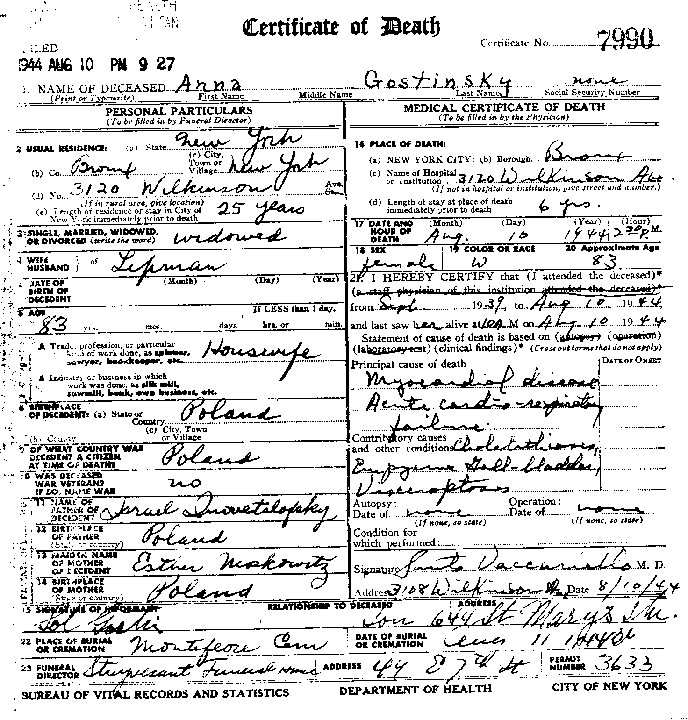 HEALTH
Certificate of Death
FILED
Certificate No. 7990
1944 AUG 10 PM 9 27
1. NAME OF DECEASED Anna Gostinsky none
(Print or Typewrite) First Name Middle Name Last Name Social Security Number
PERSONAL PARTICULARS
(To be filled in by Funeral Director)
2 USUAL RESIDENCE: (a) State New York
(b) Co. Bronx (c) City, Town or Village New York
(d) No. 3120 Wilkinson Ave.
(If in rural area, give location)
(e) Length of residence or stay in City of New York immediately prior to death 25 years
3 SINGLE, MARRIED, WIDOWED, OR DIVORCED (write the word) widowed
4 WIFE HUSBAND of Lipman
DATE OF BIRTH OF DECEDENT (Month) (Day) (Year)
AGE 83 yrs. mos. days If LESS than 1 day, hrs. or min.
A Trade, profession, or particular kind of work done, as spinner, sawyer, bookkeeper, etc. Housewife
B Industry or business in which work was done, as silk mill, sawmill, bank, own business, etc.
8 BIRTHPLACE OF DECEDENT: (a) State or Country Poland
(b) County (c) City, Town or Village
9 OF WHAT COUNTRY WAS DECEDENT A CITIZEN AT TIME OF DEATH? Poland
10 WAS DECEASED WAR VETERAN? IF SO, NAME WAR no
11 NAME OF FATHER OF DECEDENT Israel
12 BIRTHPLACE OF FATHER (State or country) Poland
13 MAIDEN NAME OF MOTHER OF DECEDENT Esther Moskowitz
14 BIRTHPLACE OF MOTHER (State or country) Poland
MEDICAL CERTIFICATE OF DEATH
(To be filled in by the Physician)
16 PLACE OF DEATH:
(a) NEW YORK CITY: (b) Borough Bronx
(c) Name of Hospital or Institution 3120 Wilkinson Ave
(If not in hospital or institution, give street and number.)
(d) Length of stay at place of death immediately prior to death 6 yrs.
17 DATE AND HOUR OF DEATH (Month) (Day) (Year) (Hour)
Aug. 10 1944 2:30 P M
18 SEX 19 COLOR OR RACE 20 Approximate Age
female W 83
21 I HEREBY CERTIFY that (I attended the deceased)*
(a staff physician of this institution attended the deceased)*
from Sept 1939 to Aug 10 1944
and last saw her alive at 10 A M on Aug 10 1944
Statement of cause of death is based on (autopsy) (operation)
(laboratory test) (clinical findings)* (Cross out terms that do not apply)
Principal cause of death DATE OF ONSET
Myocardial disease
Acute cardio-respiratory
failure
Contributory causes and other conditions Cholelithiasis,
Empyema Gall-bladder,
Visceroptosis
Autopsy: Date of none Operation: Date of none
(If none, so state) (If none, so state)
Condition for which performed:
Signature Santo Vaccariello M. D.
Address 3108 Wilkinson Av Date 8/10/44
15 SIGNATURE OF INFORMANT RELATIONSHIP TO DECEASED ADDRESS
Sol son 644 St Mary's
22 PLACE OF BURIAL OR CREMATION Montefiore Cem DATE OF BURIAL OR CREMATION 11
23 FUNERAL DIRECTOR Stuyvesant Funeral Home ADDRESS 44 E 7th St PERMIT NUMBER 3633
BUREAU OF VITAL RECORDS AND STATISTICS DEPARTMENT OF HEALTH CITY OF NEW YORK